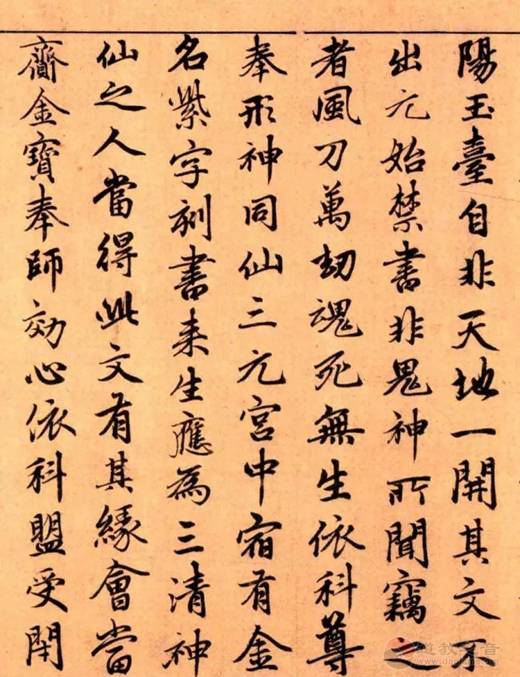 陽玉臺自非天地一開其文不
出元始禁書非鬼神所聞竊之
者風刀萬劫魂死無生依科尊
奉形神同仙三元宮中宿有金
名紫字刻書来生應為三清神
仙之人當得此文有其緣會當
齎金寶奉師効心依科盟受閇
道教之音